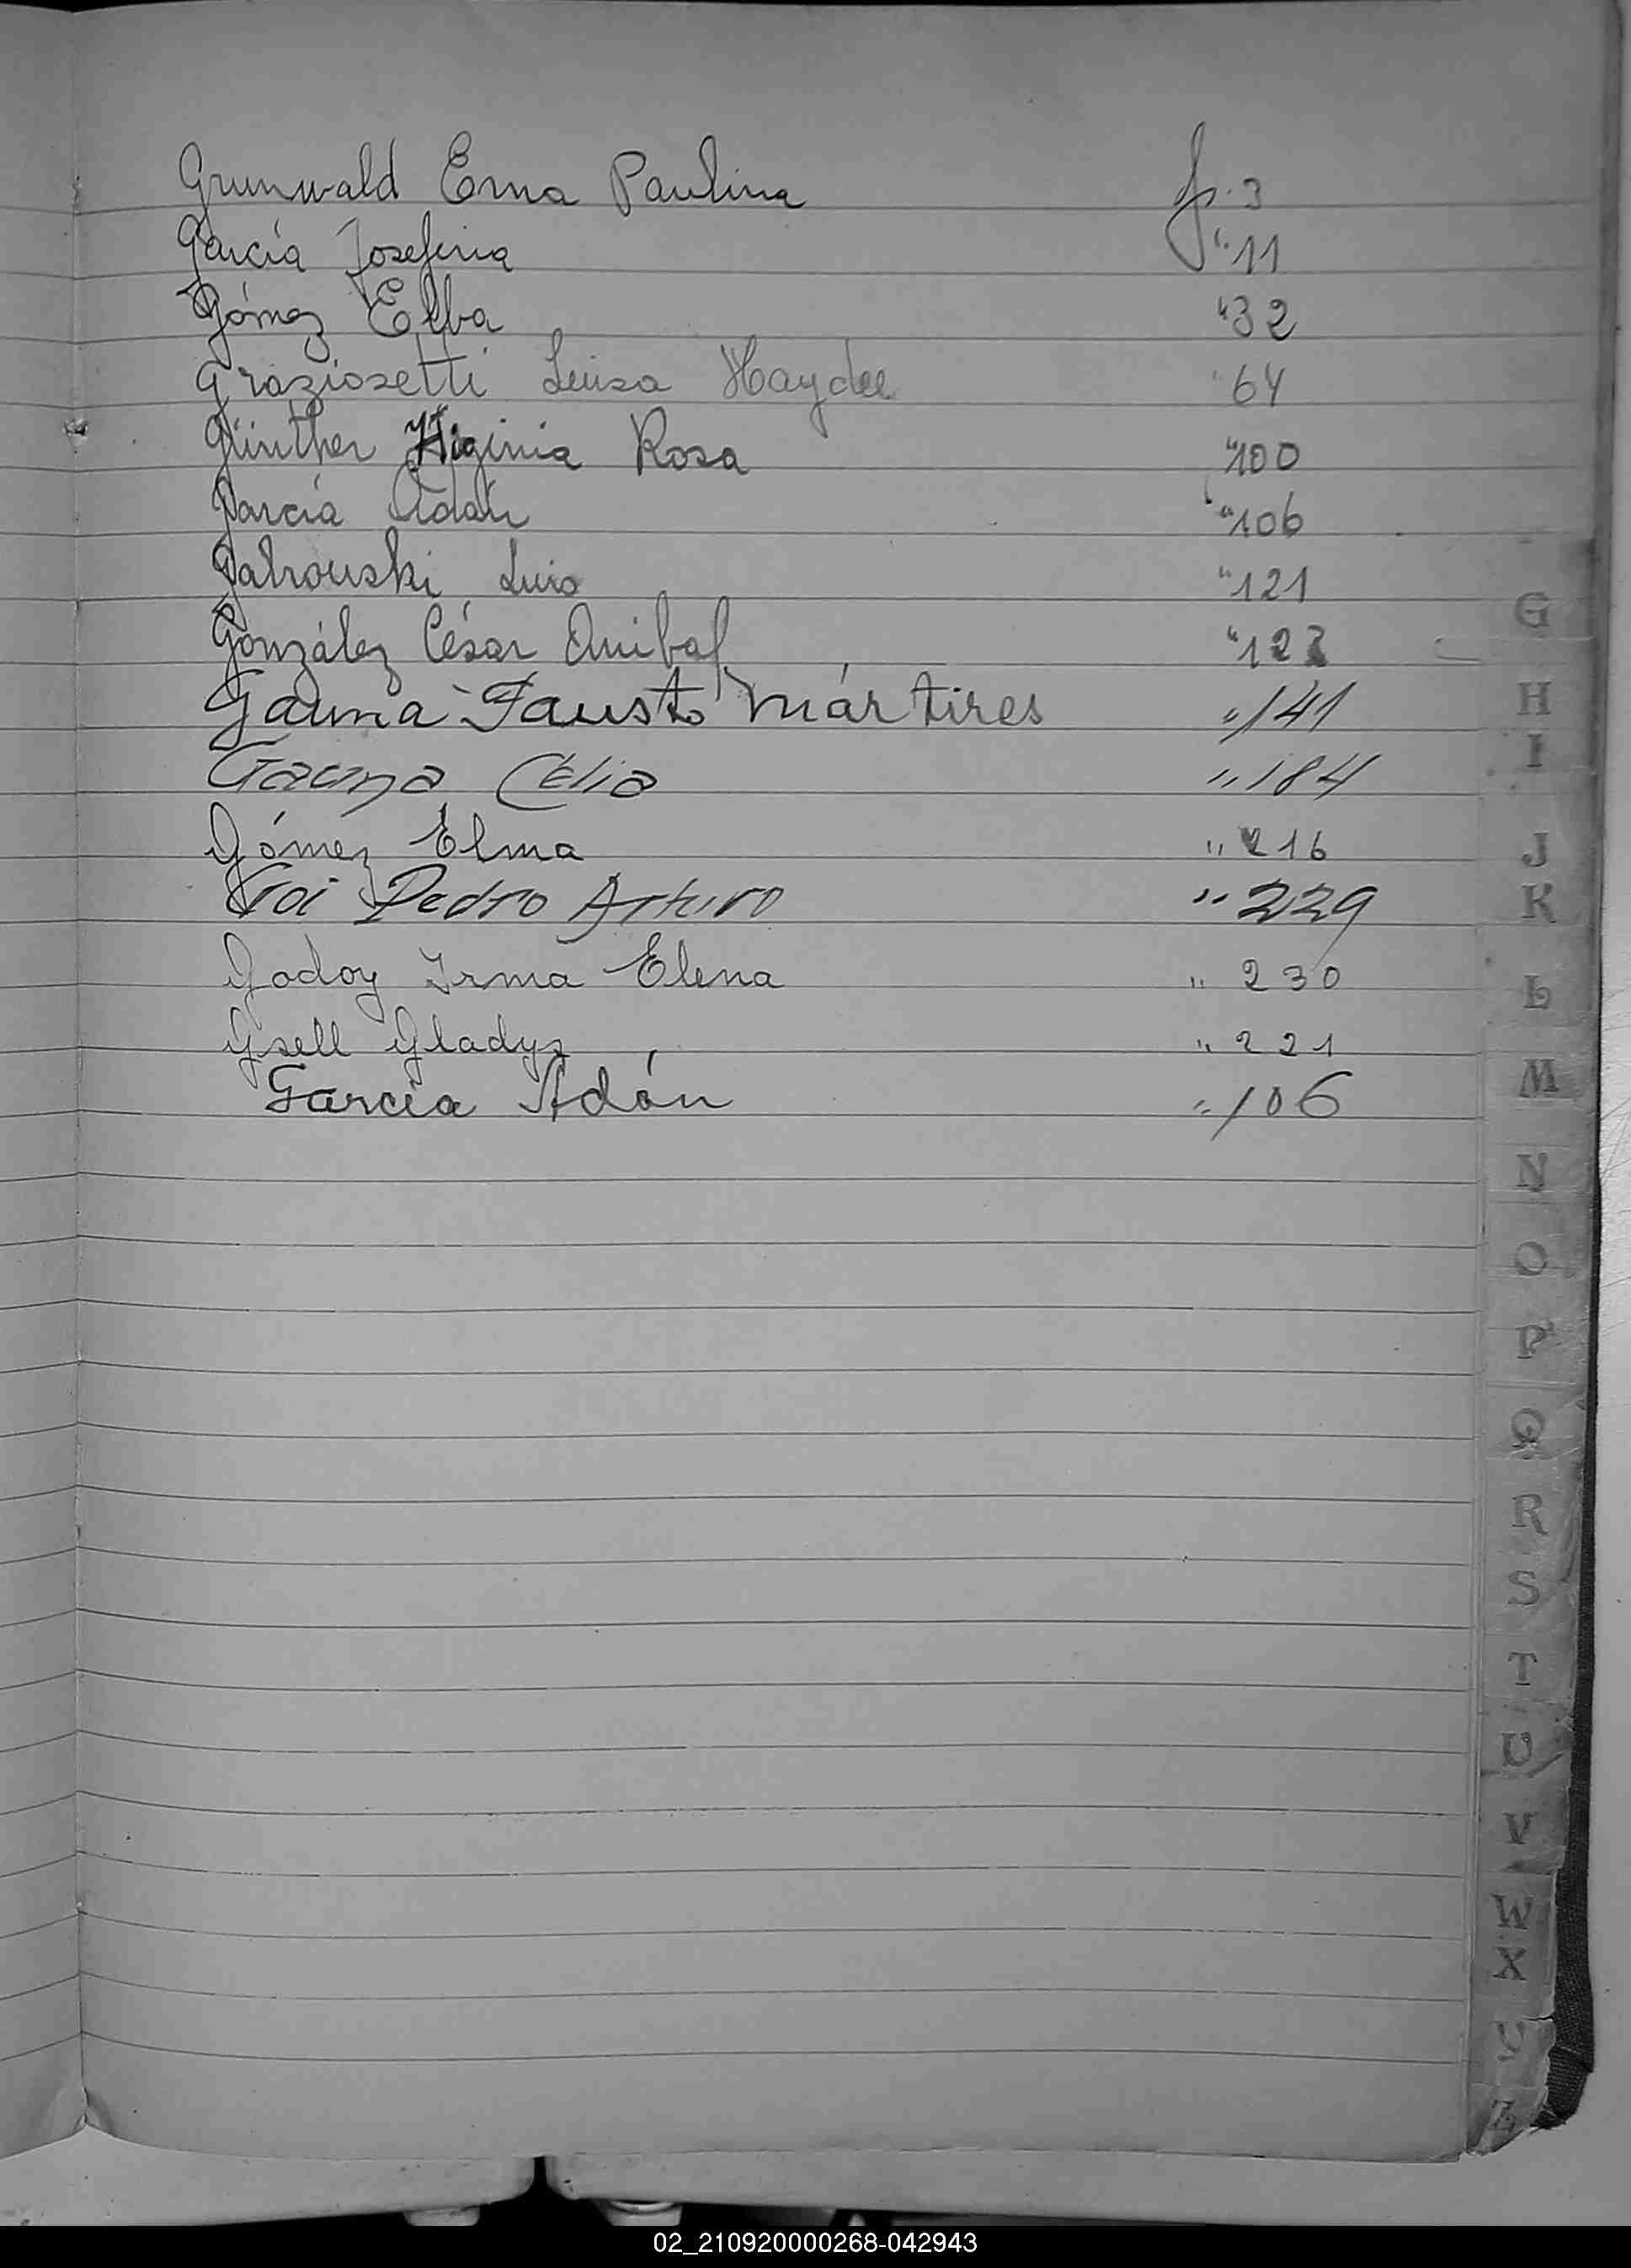 Grunwald Erna Paulina fs. 3
García Josefina " 11
Gómez Elba " 32
Graziosetti Luisa Haydee " 64
Günther Higinia Rosa " 100
García Adán " 106
Galrouski Luis " 121
González César Anibal " 123
Gauna Fausto Mártires " 141
Gauna Celia " 184
Gómez Elma " 216
Goi Pedro Arturo " 229
Godoy Irma Elena " 230
Gsell Gladys " 221
García Adán " 106
G
H
I
J
K
L
M
N
O
P
Q
R
S
T
U
V
W
X
Y
Z
02_210920000268-042943